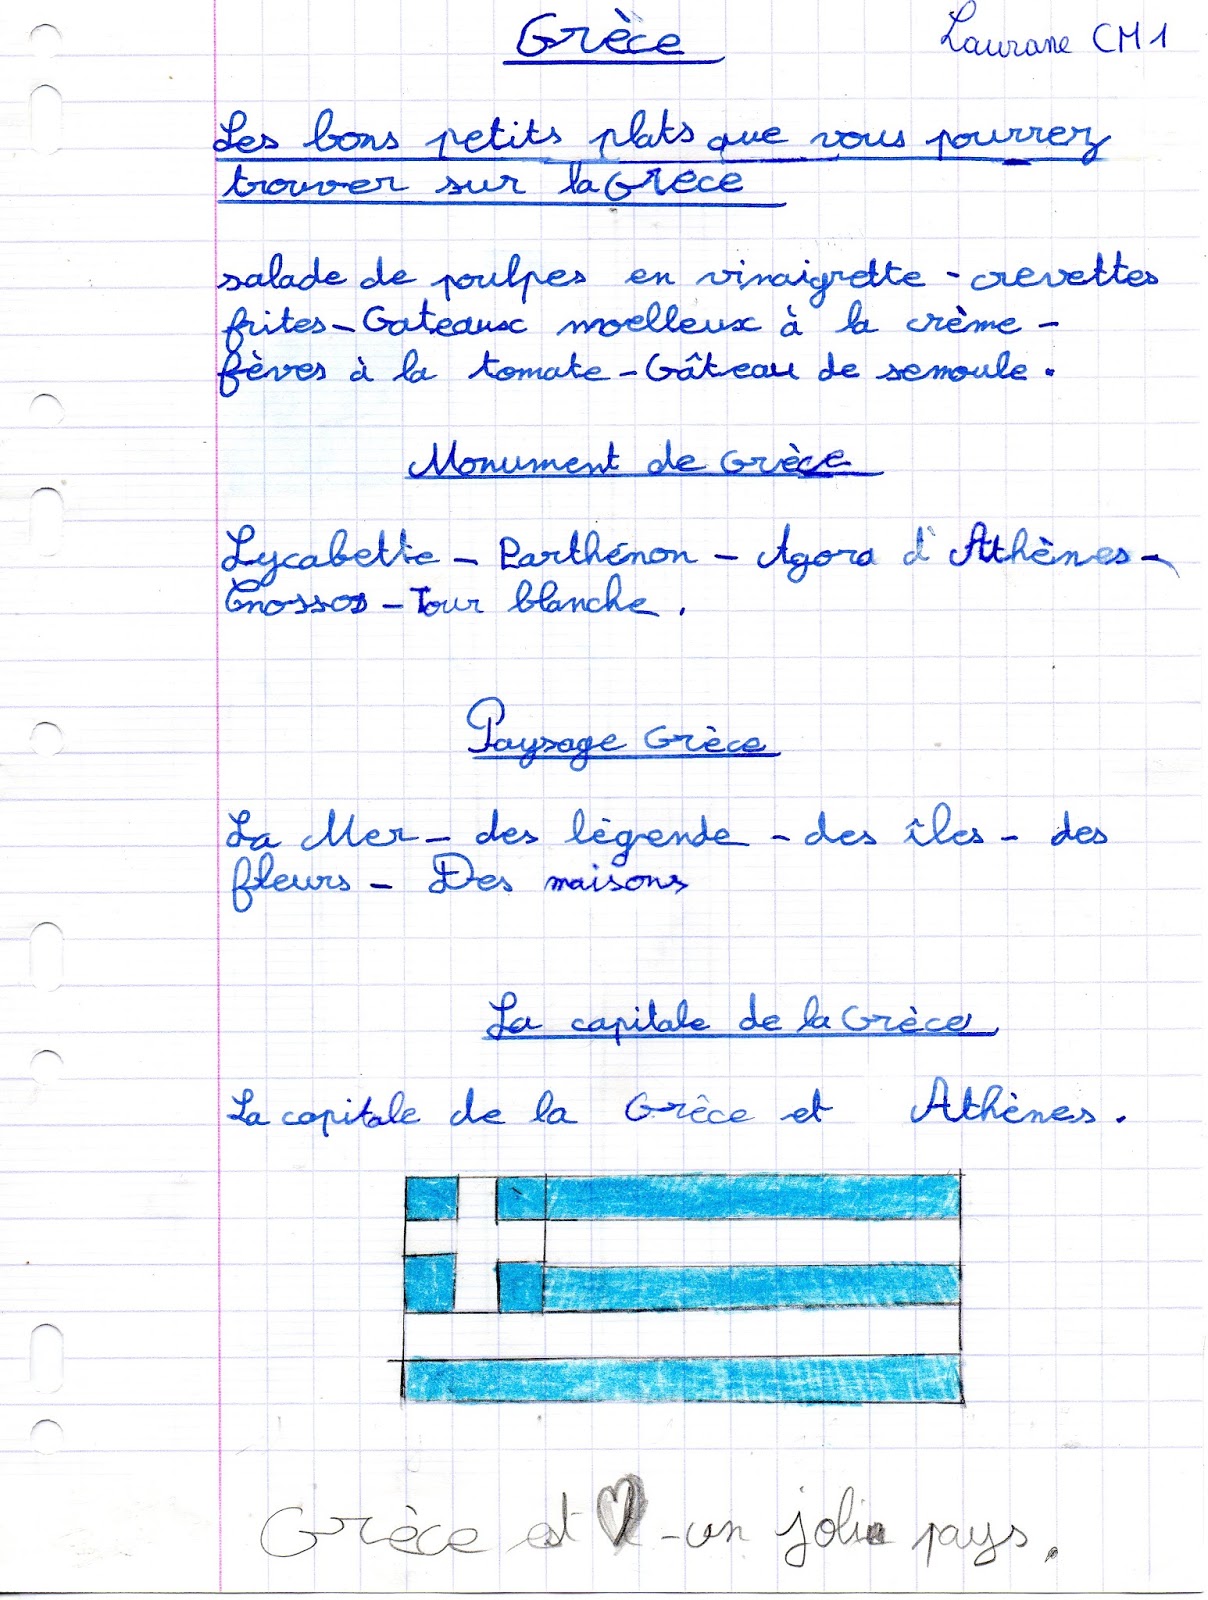 Grèce
Laurane CM1
Les bons petits plats que vous pourrez
trouver sur la Grèce
salade de poulpes en vinaigrette - crevettes
frites - Gateaux moelleux à la crème -
fèves à la tomate - Gâteau de semoule.
Monument de Grèce
Lycabette - Parthénon - Agora d'Athènes -
Cnossos - Tour blanche.
Paysage Grèce
La Mer - des légende - des îles - des
fleurs - Des maisons
La capitale de la Grèce
La capitale de la Grèce et Athènes.
Grèce est - un joli pays.